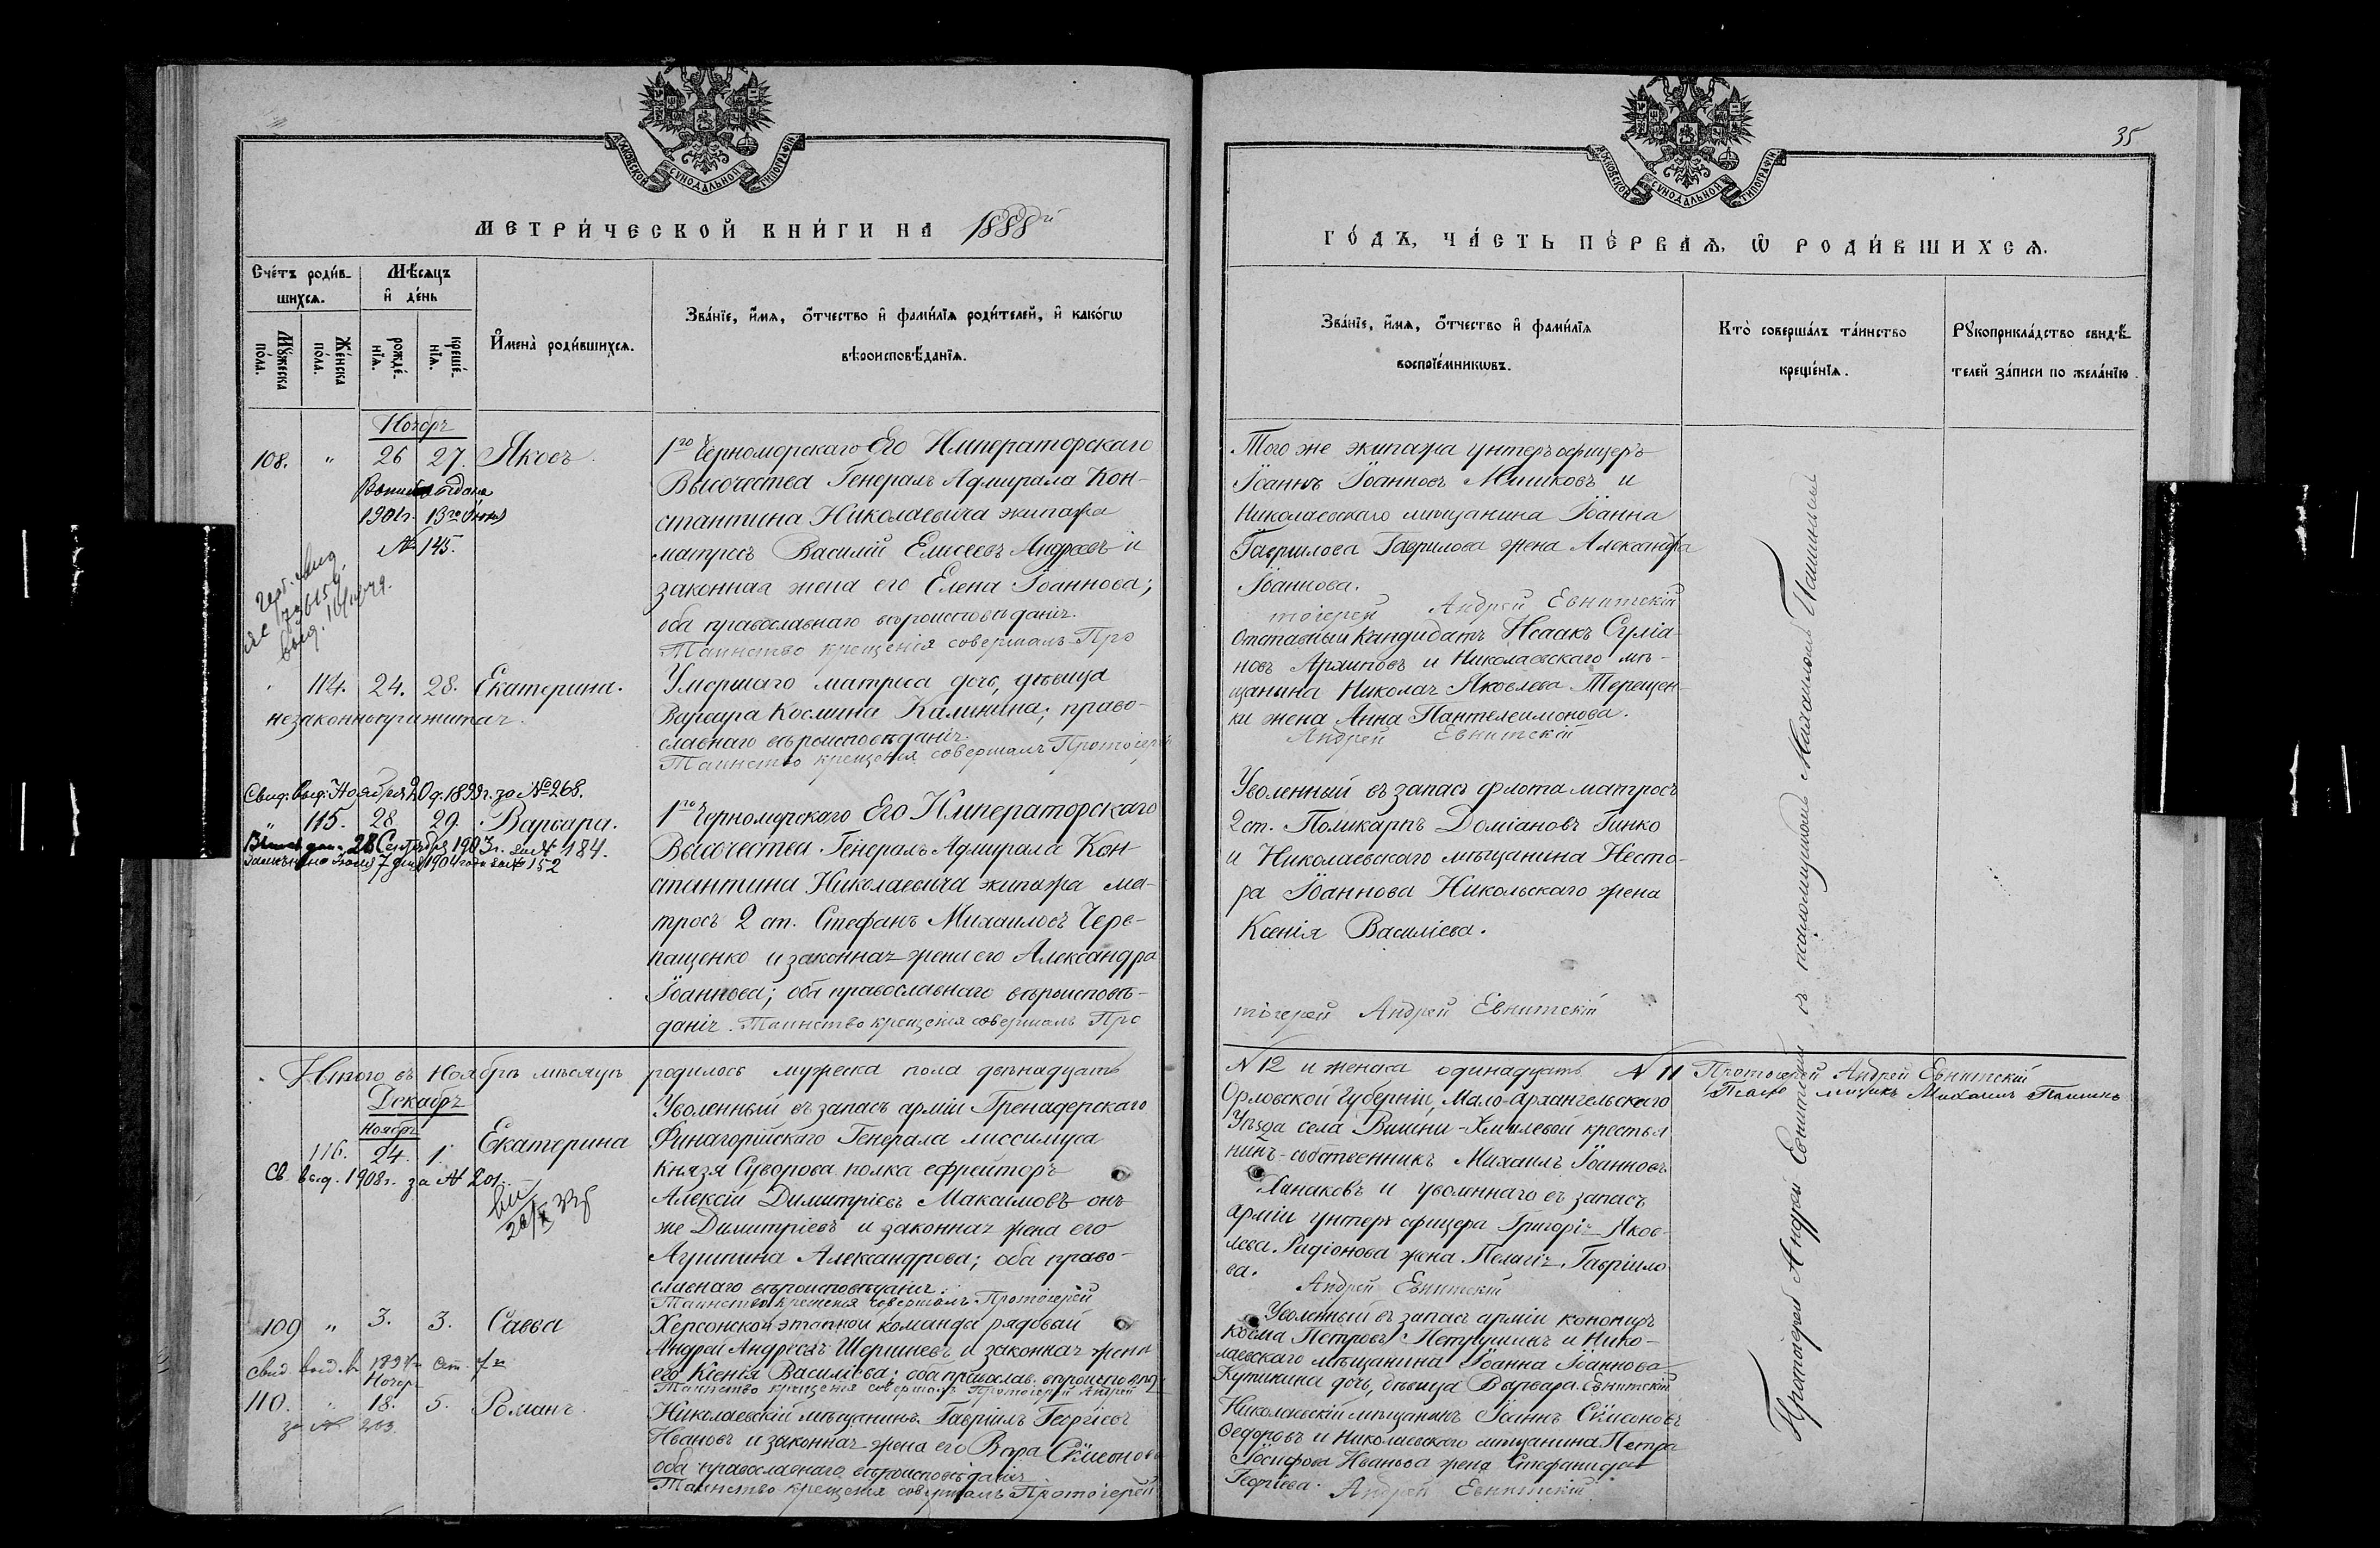 35
МОСКОВСКОЙ СѴНОДАЛЬНОЙ ТИПОГРАФІИ
МЕТРИ́ЧЕСКОЙ КНИ́ГИ НА 1888й
Сче́тъ роди́в-
шихсѧ.
Мꙋ́жеска по́ла.
Же́нска по́ла.
Мѣ́сяцъ
и҆ де́нь
рожде́-
нїѧ.
креще́-
нїѧ.
И҆мена̀ роди́вшихсѧ.
Зва́нїе, и҆́мѧ, ѻ҆́тчество и҆ фами́лїѧ роди́телей, и҆ како́гѡ
вѣроисповѣ́данїѧ.
Ноябрь
108. " 26 27. Яковъ.
1го Черноморскаго Его Императорскаго
Высочества Генералъ Адмирала Кон-
стантина Николаевича экипажа
матросъ Василій Елисеевъ Андреевъ и
законная жена его Елена Іоаннова;
оба православнаго вѣроисповѣданія.
Таинство крещенія совершалъ Про
выдана
1901г. 13го Іюня
№ 145.
" 114. 24. 28. Екатерина.
незаконнорожитая.
Умершаго матроса дочь, дѣвица
Варвара Космина Калинина; право-
славнаго вѣроисповѣданія.
Таинство крещенія совершалъ Протоіерей
Свид. выд. Ноября 20 д. 1899г. за № 268.
" 115. 28. 29. Варвара.
28 Сентября 1903г. за № 184.
Іюня 7 дня 1904 года за № 152
1го Черноморскаго Его Императорскаго
Высочества Генералъ Адмирала Кон
стантина Николаевича экипажа ма-
тросъ 2 ст. Стефанъ Михаиловъ Чере-
пащенко и законная жена его Александра
Іоаннова; оба православнаго вѣроисповѣ-
данія. Таинство крещенія совершалъ Про
Итого въ Ноябрѣ мѣсяцѣ родилось мужеска пола двѣнадцать
Декабрь
Ноябрь
116. 24. 1. Екатерина
Св. выд. 1908г. за № 201.
Уволенный въ запасъ арміи Гренадерскаго
Фанагорійскаго Генерала
Князя Суворова полка ефрейторъ
Алексій Димитріевъ Максимовъ онъ
же Димитріевъ и законная жена его
Агрипина Александрова; оба право-
славнаго вѣроисповѣданія.
Таинство крещенія совершалъ Протоіерей
109 " 3. 3. Савва
Херсонской этапной команды рядовый
Андрей Андреевъ Шершневъ и законная жена
его Ксенія Василіева; оба православ. вѣроисповѣд.
Таинство крещенія совершалъ Протоіерей Андрей
Ноябр
110. " 18. 5. Романъ.
за № 203
Николаевскій мѣщанинъ Гавріилъ Георгіевъ
Ивановъ и законная жена его Вѣра Сѵмеонова
оба православнаго вѣроисповѣданія
Таинство крещенія совершалъ Протоіерей
МОСКОВСКОЙ СѴНОДАЛЬНОЙ ТИПОГРАФІИ
ГО́ДЪ, ЧА́СТЬ ПЕ́РВАѦ, Ѡ҆ РОДИ́ВШИХСѦ.
Зва́нїе, и҆́мѧ, ѻ҆́тчество и҆ фами́лїѧ
воспрїе́мникѡвъ.
Кто̀ соверша́лъ та́инство
креще́нїѧ.
Рꙋкоприкла́дство свидѣ́-
телей за́писи по жела́нїю.
Того же экипажа унтеръ офицеръ
Іоаннъ Іоанновъ Мишковъ и
Николаевскаго мѣщанина Іоанна
Гаврилова Гаврилова жена Александра
Іоаннова.
тоіерей Андрей Евнитскій
Отставный Кандидатъ Исаакъ Суліа-
новъ Архиповъ и Николаевскаго мѣ-
щанина Николая Яковлева Терещен-
ки жена Анна Пантелеимонова.
Андрей Евнитскій
Уволенный въ запасъ флота матросъ
2 ст. Поликарпъ Доміановъ Гинко
и Николаевскаго мѣщанина Несто-
ра Іоаннова Никольскаго жена
Ксенія Василіева.
тоіерей Андрей Евнитскій
№ 12 и женска одинадцать № 11 Протоіерей Андрей Евнитскій
Псаломщикъ Михаилъ Пашинъ
Орловской Губерніи, Мало-Архангельскаго
Уѣзда села Вышни-Хмилевой крестья
нинъ-собственникъ Михаилъ Іоанновъ
Ханаковъ и уволеннаго въ запасъ
арміи унтеръ офицера Григорія Яков-
лева Радіонова жена Пелагія Гавріило
ва.
Андрей Евнитскій
Уволенный въ запасъ арміи
Косма Петровъ Петушинъ и Нико-
лаевскаго мѣщанина Іоанна Іоаннова
дочь, дѣвица Варвара. Евнитскій
Николаевскій мѣщанинъ Іоаннъ Сѵмеоновъ
Ѳедоровъ и Николаевскаго мѣщанина Петра
Іосифова Иванова жена Стефанида
Георгіева. Андрей Евнитскій
Протоіерей Андрей Евнитскій съ псаломщикомъ Михаиломъ Пашинымъ